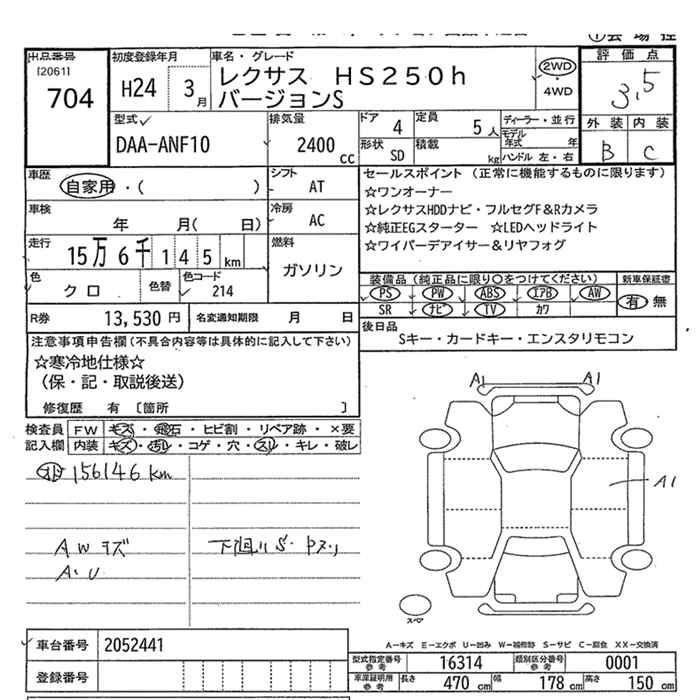 出品番号
[2061]
704
初度登録年月
H24 3月
車名・グレード
レクサス HS250h
バージョンS
2WD
4WD
評価点
3.5
外装 内装
B C
型式
DAA-ANF10
排気量
2400 cc
ドア 4
定員 5人
形状 SD
積載 kg
ディーラー・並行
モデル年式 年
ハンドル 左・右
車歴
自家用・( )
シフト
AT
車検
年 月( 日)
冷房
AC
走行
15万6千145km
燃料
ガソリン
色
クロ
色替
色コード
214
R券 13,530円
名変通知期限 月 日
セールスポイント (正常に機能するものに限ります)
☆ワンオーナー
☆レクサスHDDナビ・フルセグF&Rカメラ
☆純正EGスターター ☆LEDヘッドライト
☆ワイパーデアイサー&リヤフォグ
装備品(純正品に限り○をつけてください)
PS PW ABS エアB AW
SR ナビ TV カワ
新車保証書
有 無
後日品
Sキー・カードキー・エンスタリモコン
注意事項申告欄(不具合内容等は具体的に記入して下さい)
☆寒冷地仕様☆
(保・記・取説後送)
修復歴 有 [箇所 ]
検査員記入欄
FW キズ・飛石・ヒビ割・リペア跡・×要
内装 キズ・汚レ・コゲ・穴・スレ・キレ・破レ
156146km
AWキズ
A.U
下廻りS.
A1 A1
A1
スペア
A-キズ E-エクボ U-凹み W-補修跡 S-サビ C-腐食 XX-交換済
車台番号 2052441
登録番号
型式指定番号 参考 16314
類別区分番号 参考 0001
車庫証明用 参考 長さ 470cm 幅 178cm 高さ 150cm